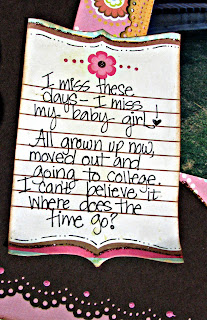 I miss these
days - I miss
my baby girl!
All grown up now,
moved out and
going to college.
I cant believe it
where does the
time go?